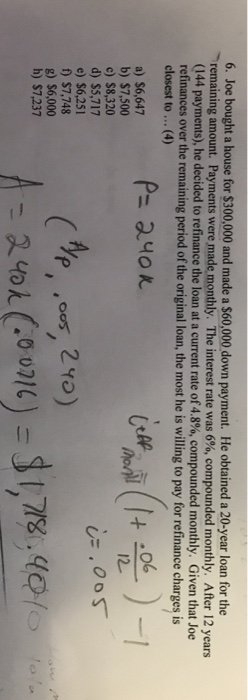 6. Joe bought a house for $300,000 and made a $60,000 down payment. He obtained a 20-year loan for the
remaining amount. Payments were made monthly. The interest rate was 6%, compounded monthly. After 12 years
(144 payments), he decided to refinance the loan at a current rate of 4.8%, compounded monthly. Given that Joe
refinances over the remaining period of the original loan, the most he is willing to pay for refinance charges is
closest to ... (4)
a) $6,647
b) $7,500
c) $8,320
d) $5,717
e) $6,251
f) $7,748
g) $6,000
h) $7,237
P = 240k
i eff month = (1 + .06/12) - 1
i = .005
(A/P, .005, 240)
A = 240k (.00716) = $1,718.40